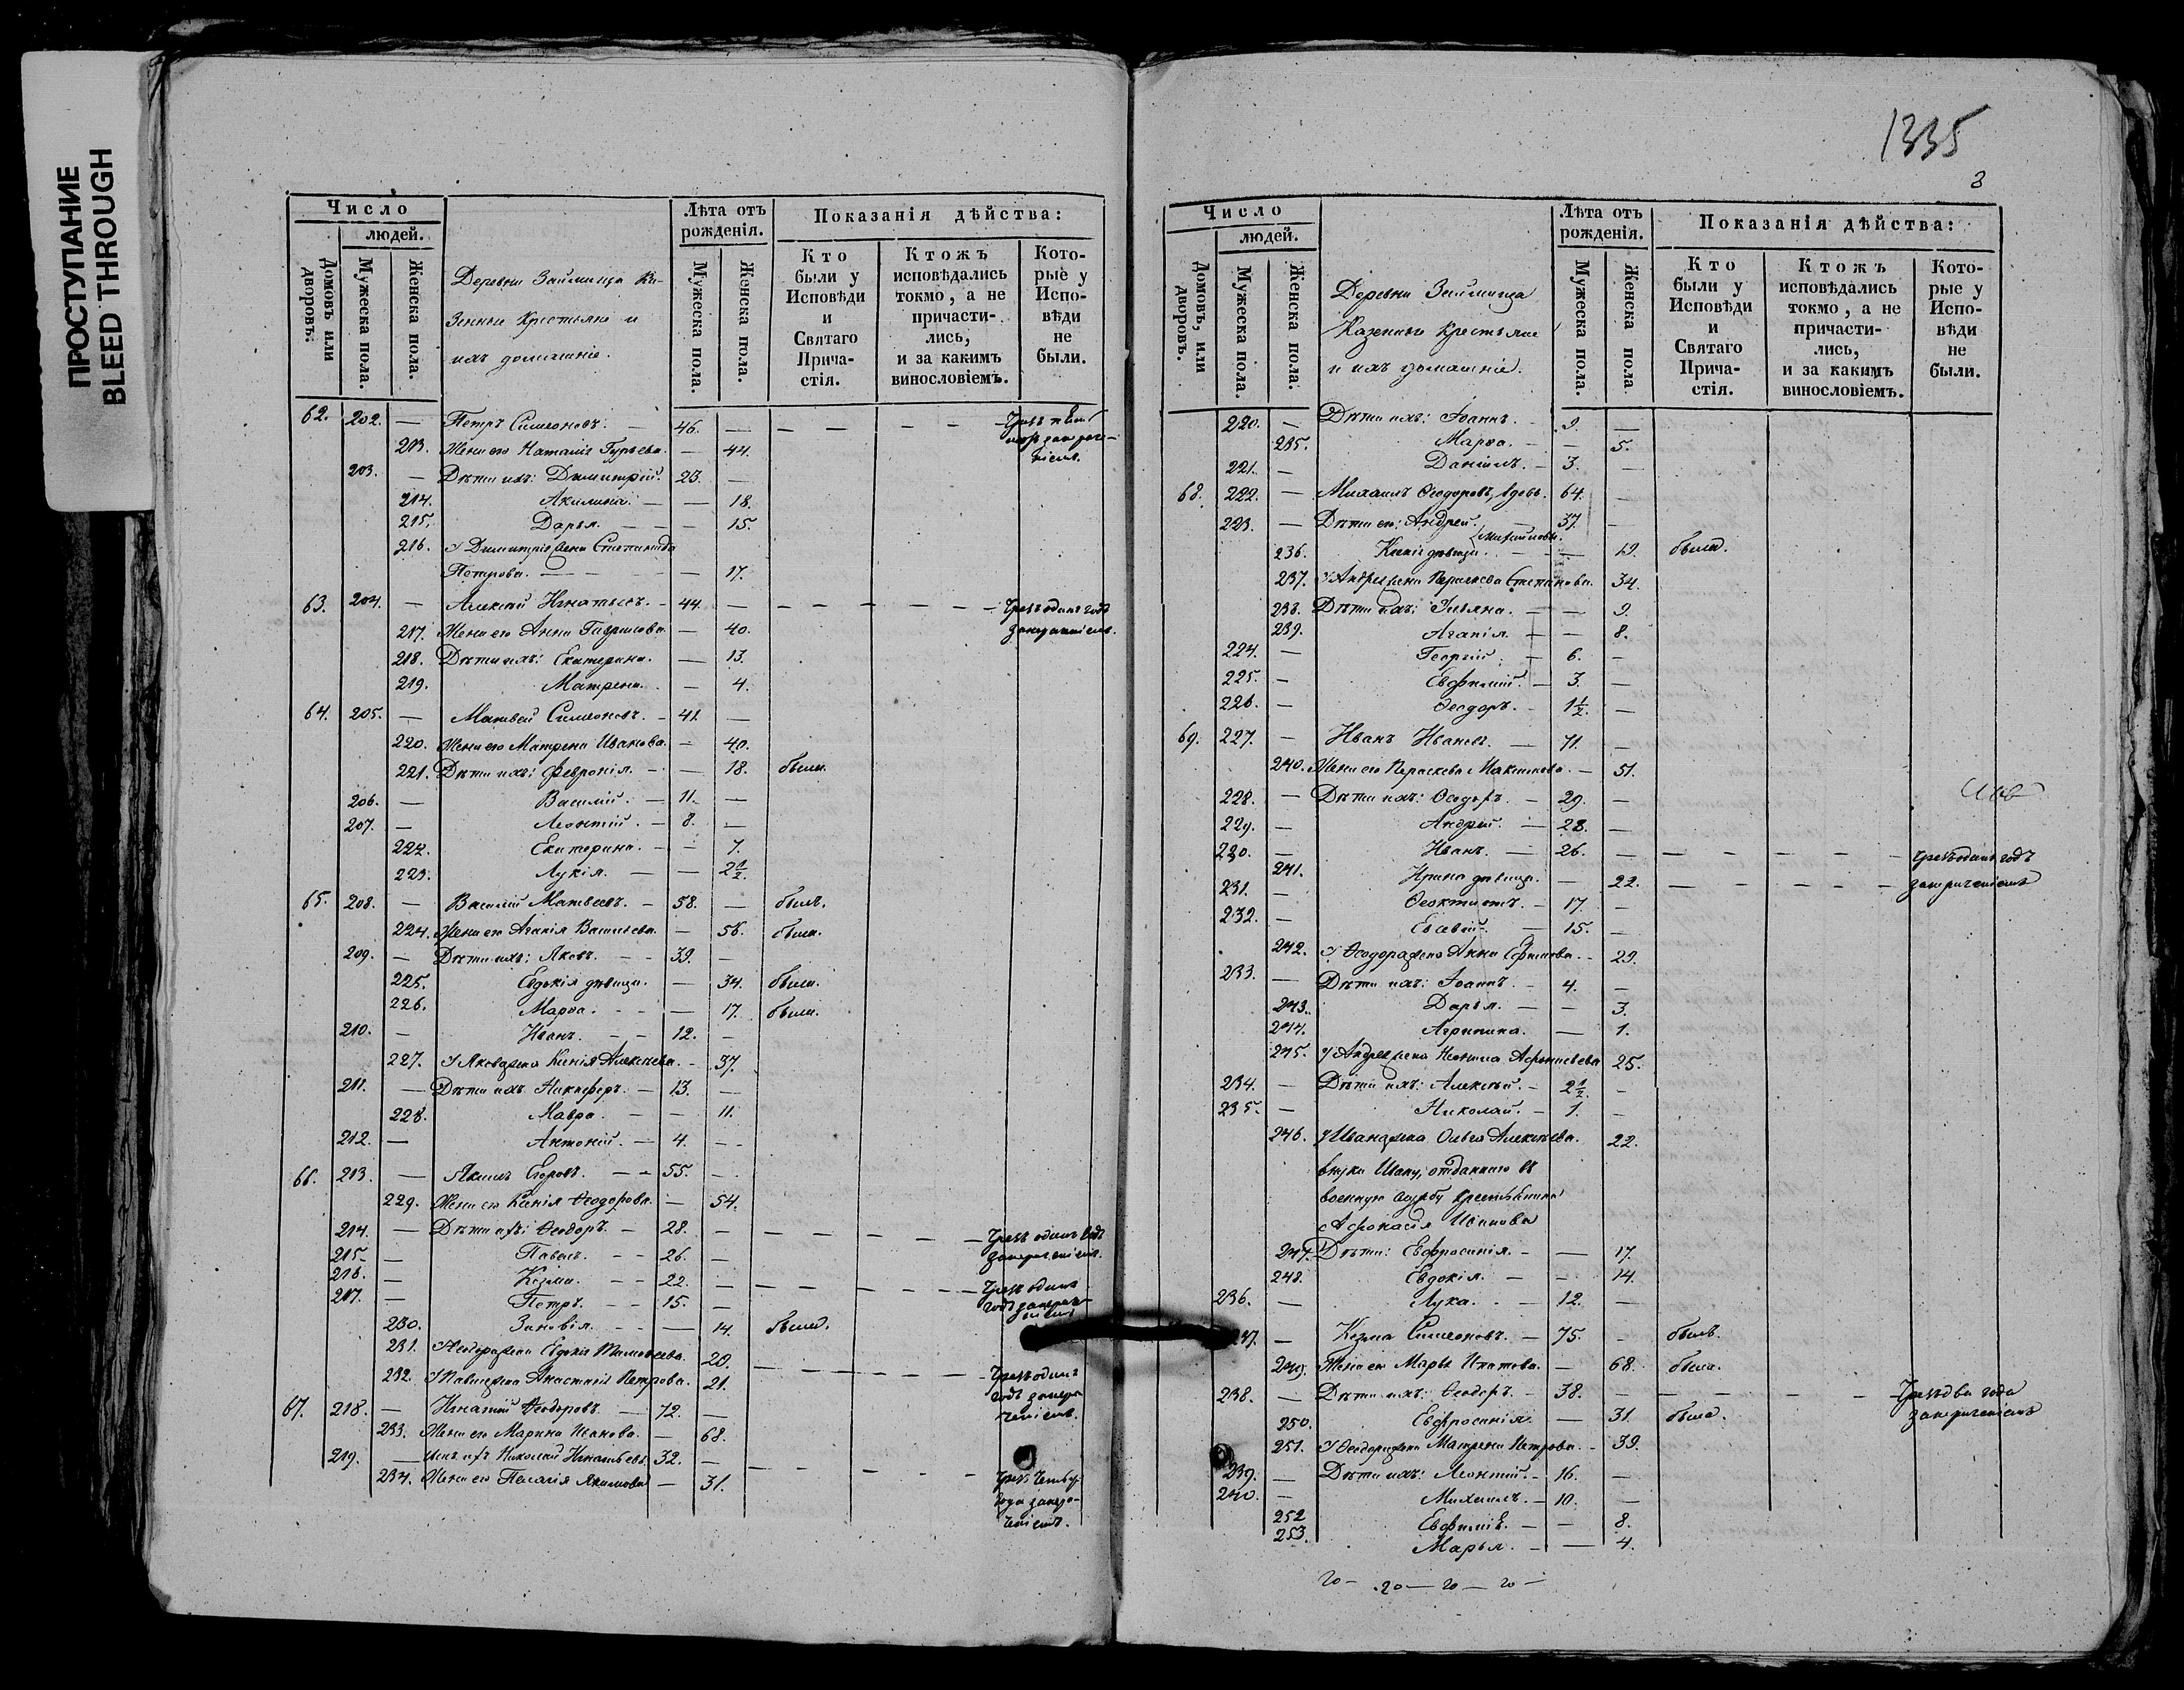 ПРОСТУПАНИЕ
BLEED THROUGH
Число
людей.
Домовъ или дворовъ.
Мужеска пола.
Женска пола.
Деревни Займища Ка-
зенные Крестьяне и
ихъ домашніе.
Лѣта отъ рожденія.
Мужеска пола.
Женска пола.
Показанія дѣйства:
Кто были у Исповѣди и Святаго Прича-стія.
Ктожъ исповѣдались токмо, а не причасти-лись, и за какимъ винословіемъ.
Кото-рые у Испо-вѣди не были.
62. 202. — Петръ Симеоновъ. — 46. —
213. Жена его Наталія Гурьева. — 44.
203. — Дѣти ихъ: Димитрій. 23. —
214. Акилина. — — 18.
215. Дарья. — — — 15.
216. У Димитрія жена Степанида
Петрова. — — 17.
63. 204. — Алексѣй Игнатьевъ. — 44. — — Чрезъ одинъ годъ
217. Жена его Анна Гаврилова. — 40. занераченіемъ.
218. Дѣти ихъ: Екатерина. — 13.
219. Матрена. — 4.
64. 205. — Матвей Симеоновъ. — 41. —
220. Жена его Матрена Иванова. — 40.
221. Дѣти ихъ: Февронія. — — 18. была.
206. — Василій. — 11. —
207. — Леонтій. — 8. —
222. Екатерина. — — 7.
223. Лукія. — — 2 1/2.
65. 208. — Василій Матвеевъ. — 58. — былъ.
224. Жена его Агапія Васильева. — 56. была.
209. — Дѣти ихъ: Яковъ. — — 39. —
225. Евдокія дѣвица. — 34. была.
226. Марѳа. — — — 17. была.
210. — Иванъ. — — 12. —
227. У Якова жена Ксенія Алексѣева. — 37.
211. — Дѣти ихъ: Никифоръ. — 13. —
228. Мавра. — — 11.
212. — Антоній. — 4. —
66. 213. — Якимъ Егоровъ. — — 55. —
229. Жена его Ксенія Ѳеодорова. — 54.
214. — Дѣти ихъ: Ѳеодоръ. — 28. — — Чрезъ одинъ годъ
215. — Павелъ. — — 26. — занераченіемъ.
216. — Козма. — — 22. — — Чрезъ одинъ
217. — Петръ. — — 15. — годъ занерач-
ніемъ
230. Зиновія. — — — 14. была.
231. У Ѳеодора жена Евдокія Тимоѳеева. 29.
232. У Павла жена Анастасія Петрова. 21. — Чрезъ одинъ
годъ занера
ченіемъ.
67. 218. — Игнатій Ѳеодоровъ. — 72. —
233. Жена его Марина Иванова. — 68.
219. — Сынъ ихъ Николай Игнатьевъ. 32. —
234. Жена его Пелагія Якимова — 31.
года занера-
ченіемъ.
1335
Число
людей.
Домовъ, или дворовъ.
Мужеска пола.
Женска пола.
Деревни Займища
Казенные Крестьяне
и ихъ домашніе.
Лѣта отъ рожденія.
Мужеска пола.
Женска пола
Показанія дѣйства:
Кто были у Исповѣди и Святаго Прича-стія.
Ктожъ исповѣдались токмо, а не причасти-лись, и за какимъ винословіемъ.
Кото-рые у Испо-вѣди не были.
220. — Дѣти ихъ: Іоаннъ. — 9. —
235. Марѳа. — — 5.
221. — Даніилъ. — 3. —
68. 222. — Михаилъ Ѳеодоровъ, вдовъ. 64. —
223. — Дѣти его: Андрей. — 37. —
236. Ксенія дѣвица. Михайлова. — 19. была.
237. У Андрея жена Параскева Степанова. 34.
238. Дѣти ихъ: Ульяна. — — 9.
239. Агапія. — — 8.
224. — Георгій. — 6. —
225. — Евфимій. — 3. —
226. — Ѳеодоръ. — 1 1/2. —
69. 227. — Иванъ Ивановъ. — 71. —
240. Жена его Параскева Максимова. — 51.
228. — Дѣти ихъ: Ѳеодоръ. — 29. —
229. — Андрей. — 28. —
230. — Иванъ. — 26. — — чрезъ одинъ годъ
241. Ирина дѣвица. — 22. — занераченіемъ
231. — Ѳеоктистъ. — 17. —
232. — Евсевій. — 15. —
242. У Ѳеодора жена Анна Ефимова. — 29.
233. — Дѣти ихъ: Іоаннъ. — 4. —
243. Дарья. — — 3.
244. Агрипина. — 1.
245. У Андрея жена Неонила Афонасьева 25.
234. — Дѣти ихъ: Алексѣй. — 2 1/2. —
235. — Николай. — 1. —
246. У Ивана жена Ольга Алексѣева. 22.
внуки Ивану, отданнаго въ
военную службу крестьянина
Афонасія Иванова
247. Дѣти: Евфросинія. — — 17.
248. Евдокія. — — 14.
236. — Лука. — 12. —
237. — Козма Симеоновъ. — 75. — былъ.
249. Жена его Марья Игнатова. — 68. была.
238. — Дѣти ихъ: Ѳеодоръ. — 38. — — Чрезъ два года
250. Евфросинія. — 31. была. занераченіемъ
251. У Ѳеодора жена Матрена Петрова. — 39.
239. — Дѣти ихъ: Леонтій. — 16. —
240. — Михаилъ. — 10. —
252 Евфимія. — — 8.
253. Марья. — — 4.